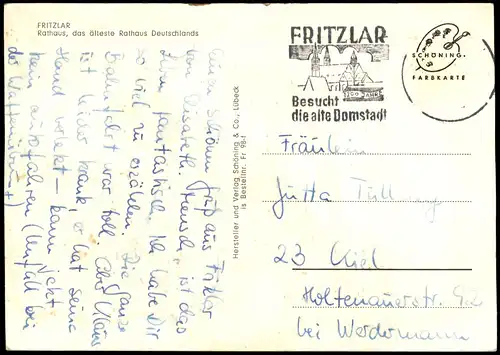 FRITZLAR
Rathaus, das älteste Rathaus Deutschlands
FRITZLAR
1200 JAHRE
Besucht
die alte Domstadt
SCHÖNING
FARBKARTE
Hersteller und Verlag Schöning & Co., Lübeck
is Bestellnr. Fr 98-f
Einen schönen Gruß aus Fritzlar
von Elisabeth. Mensch, ist das
Ihr fantastisch. Ich habe Dir
so viel zu erzählen. Die ganze
Bahnfahrt war toll. Aber Klaus
ist leider krank, er hat seine
Hand verletzt – kann jetzt
kein autofahren (Unfall bei
der
Fräulein
Jutta
23 Kiel
Holtenauerstr. 92
bei Werdermann